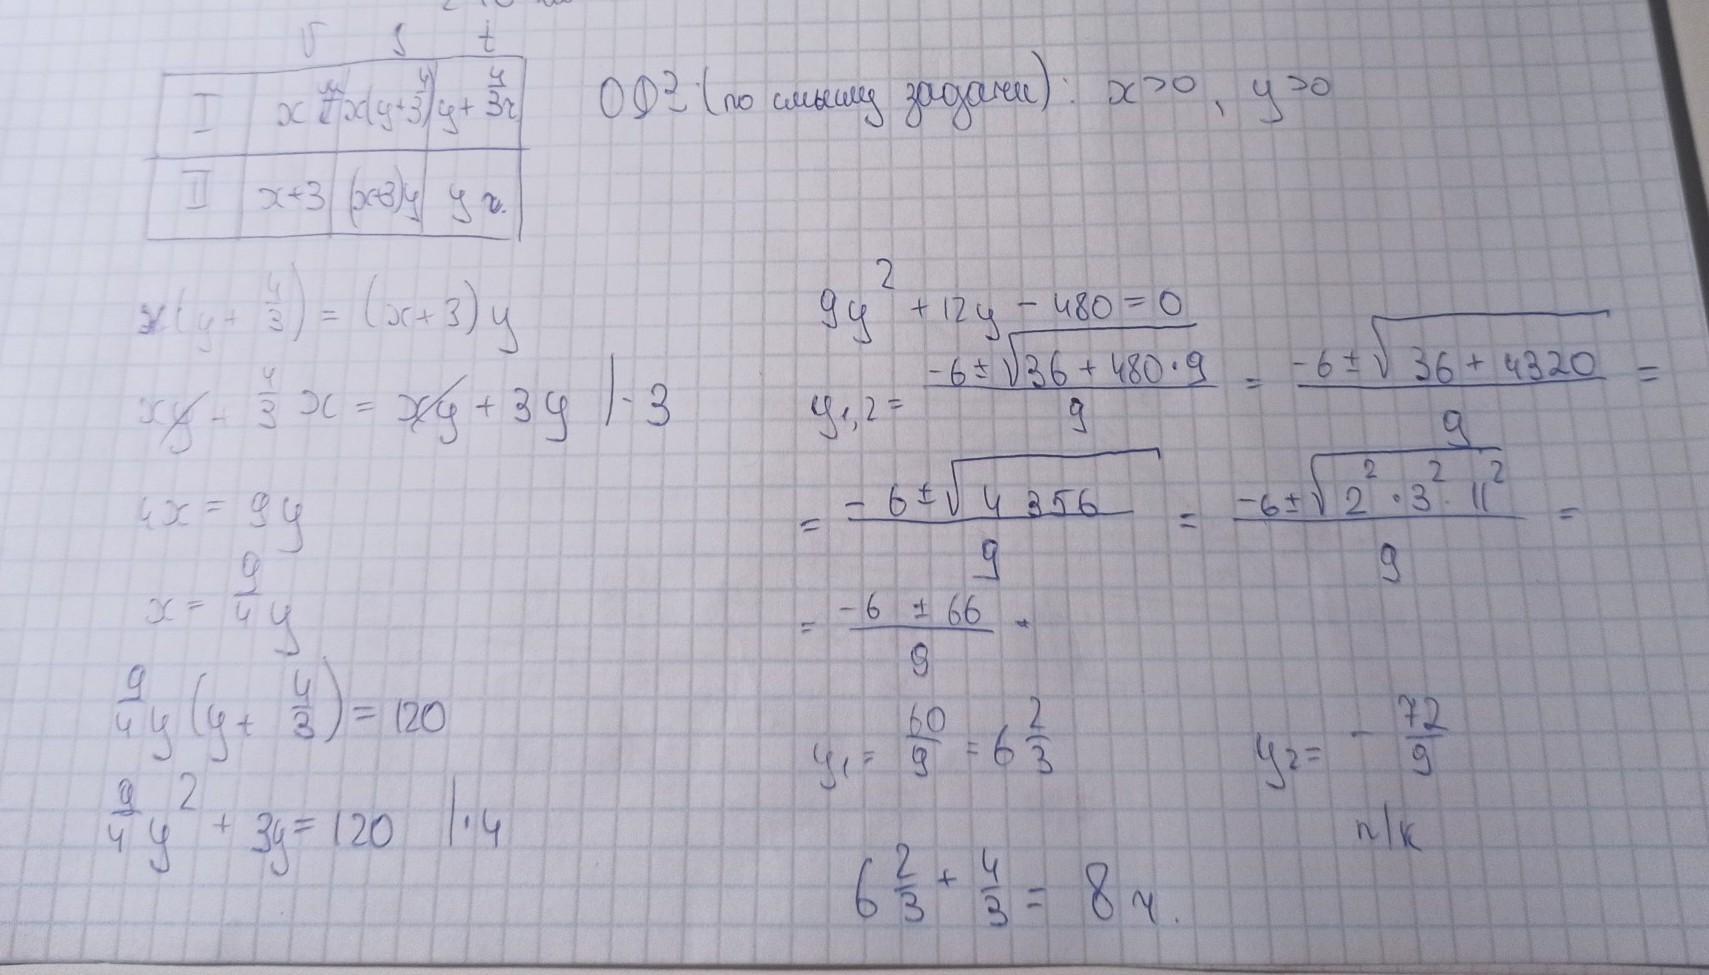 v S t
I x x(y+4/3) y+4/3 ч
II x+3 (x+3)y y ч.
ОДЗ (по смыслу задачи): x>0, y>0
x(y+4/3) = (x+3)y
xy - 4/3 x = xy + 3y |·3
4x = 9y
x = 9/4 y
9/4 y (y+4/3) = 120
9/4 y² + 3y = 120 |·4
9y² + 12y - 480 = 0
y₁,₂ = (-6 ± √(36 + 480·9))/9 = (-6 ± √(36 + 4320))/9 =
= (-6 ± √4356)/9 = (-6 ± √(2²·3²·11²))/9 =
= (-6 ± 66)/9
y₁ = 60/9 = 6 2/3 y₂ = -72/9
п/к
6 2/3 + 4/3 = 8 ч.